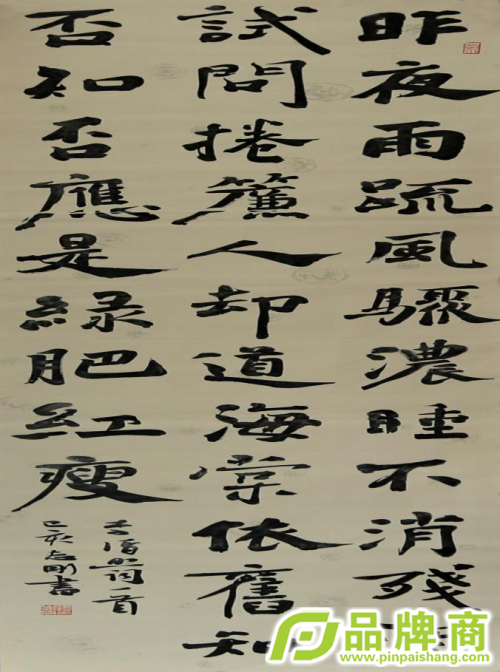 昨夜雨疏風驟濃睡不消殘
試問捲簾人却道海棠依舊知
否知否應是綠肥紅瘦
李清照詞一首
己亥志剛書
品牌商
www.pinpaishang.com